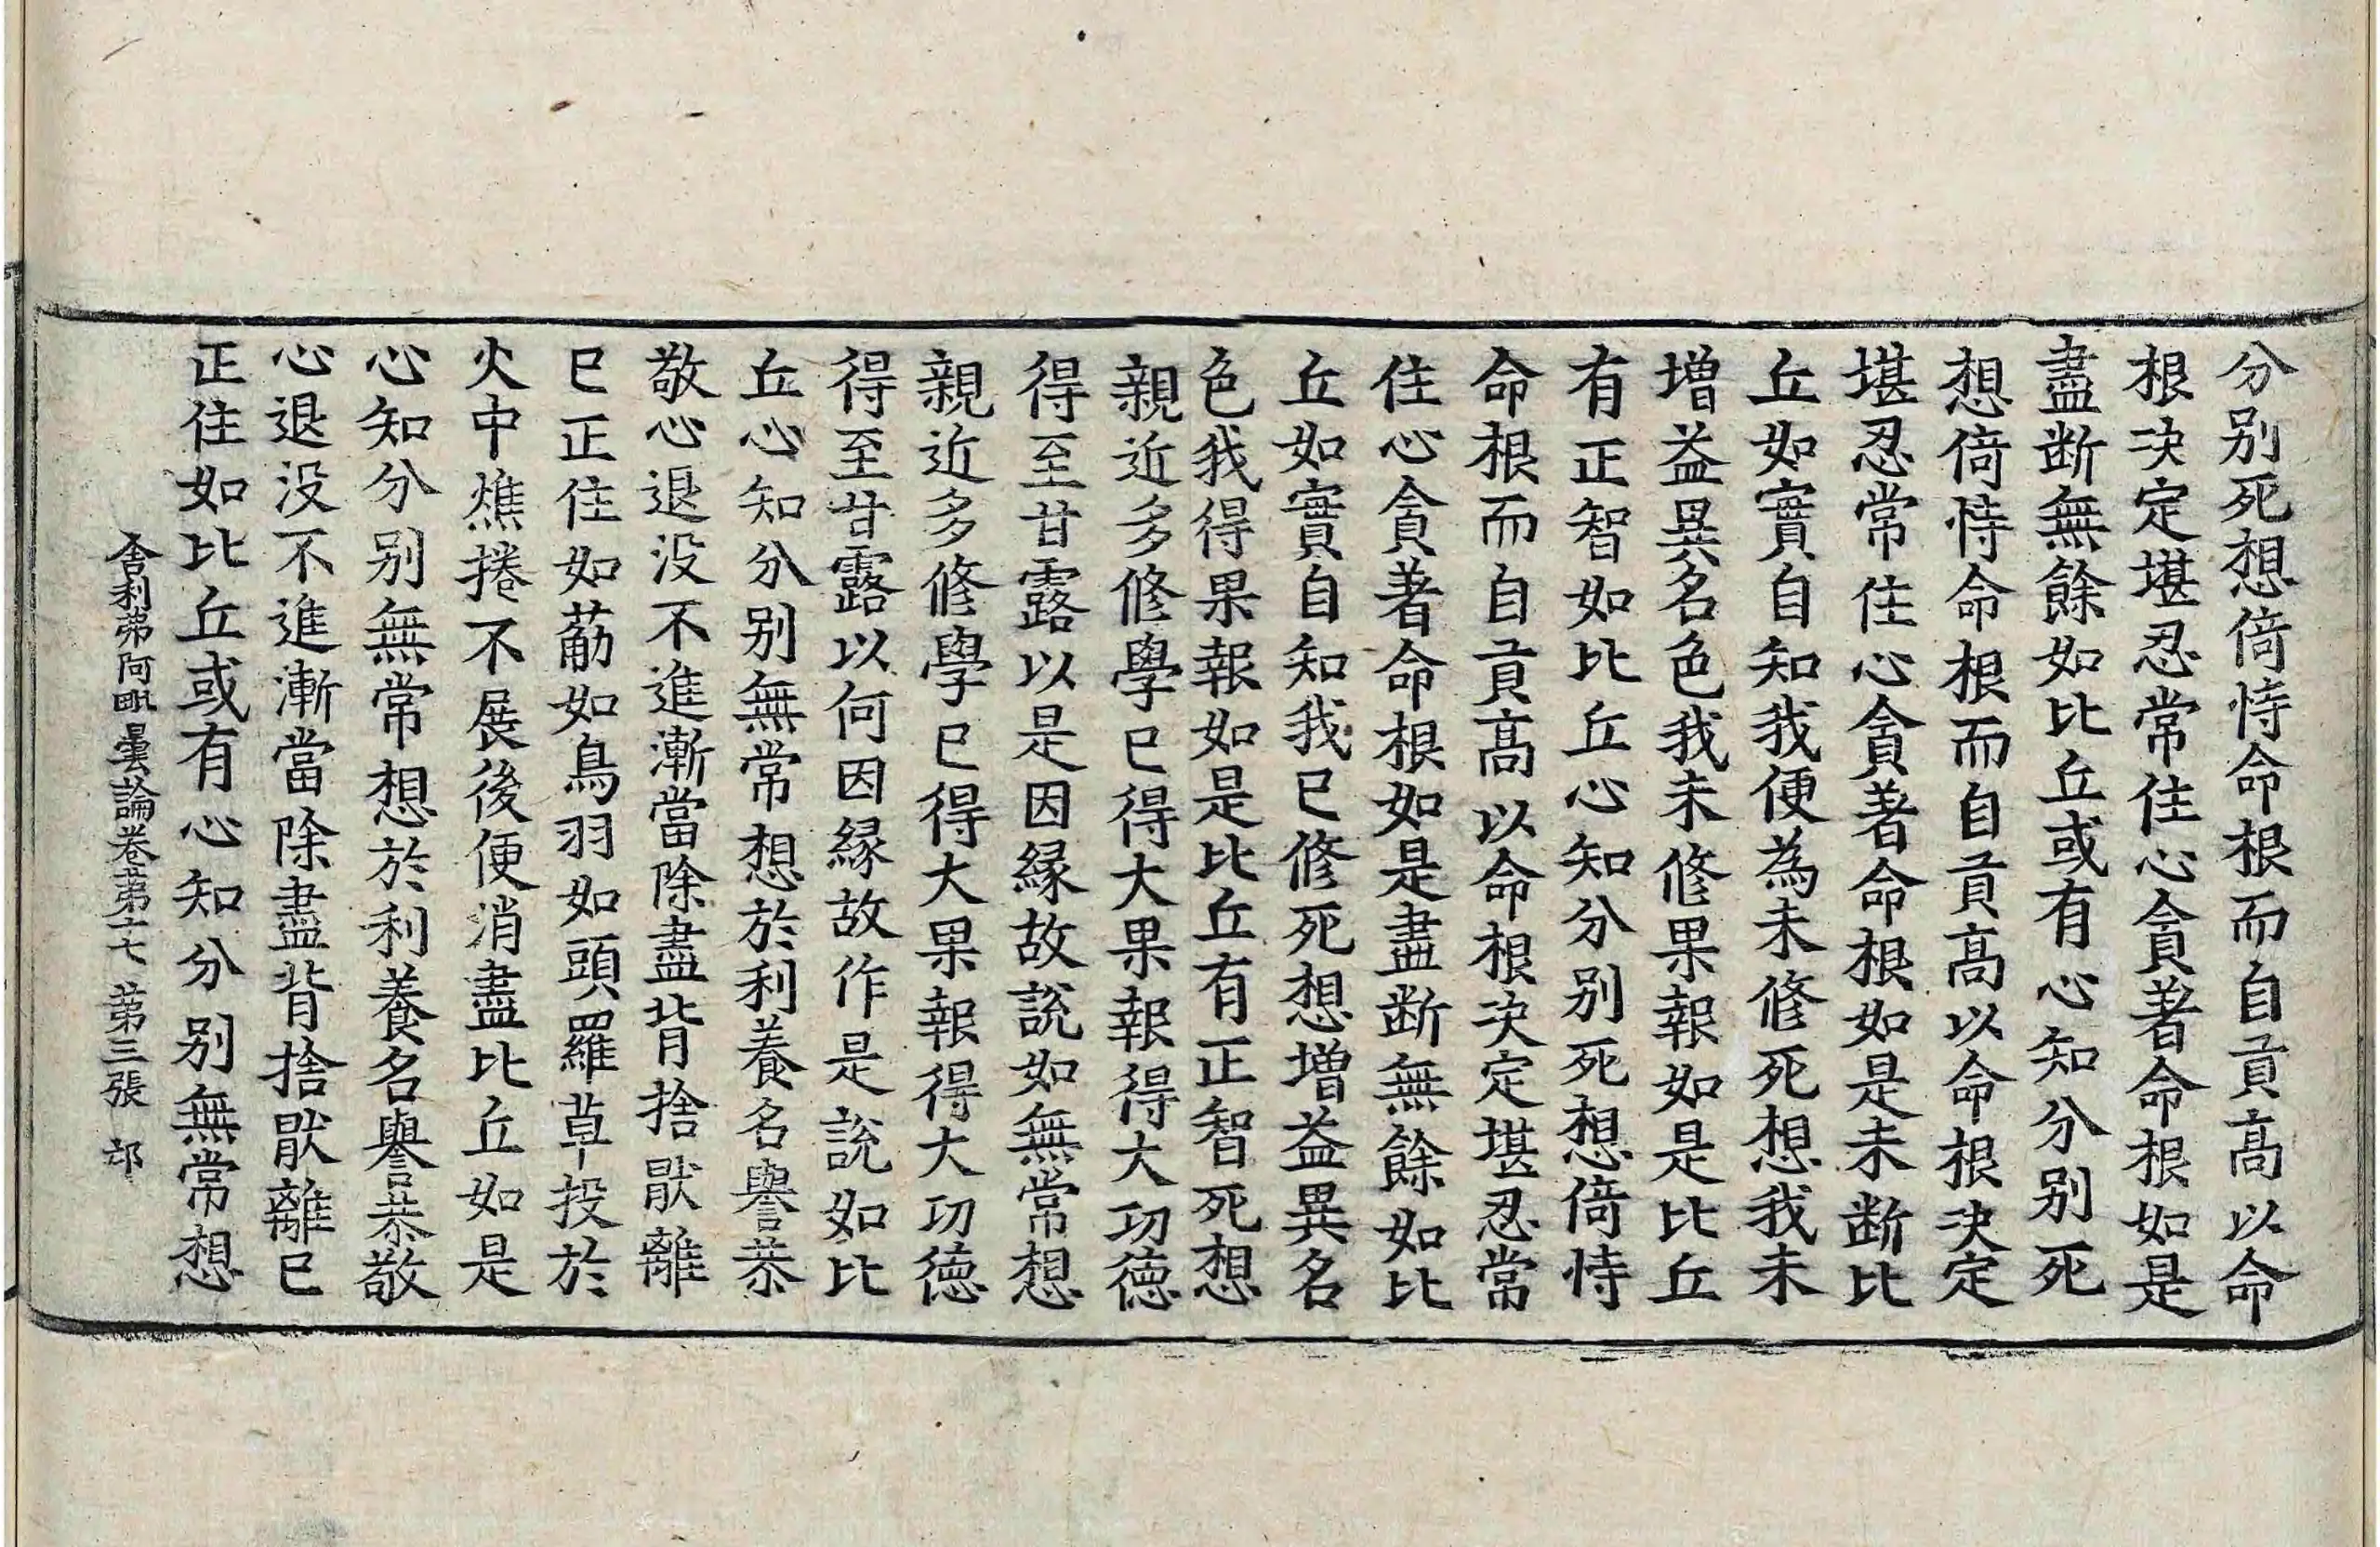 分别死想倚恃命根而自貢髙以命
根决定堪忍常住心貪著命根如是
盡断無餘如比丘或有心知分别死
想倚恃命根而自貢髙以命根决定
堪忍常住心貪著命根如是未断比
丘如實自知我便為未修死想我未
増益異名色我未修果報如是比丘
有正智如比丘心知分别死想倚恃
命根而自貢髙以命根决定堪忍常
住心貪著命根如是盡断無餘如比
丘如實自知我已修死想増益異名
色我得果報如是比丘有正智死想
親近多修學已得大果報得大功德
得至甘露以是因縁故說如無常想
親近多修學已得大果報得大功德
得至甘露以何因縁故作是說如比
丘心知分别無常想於利養名譽恭
敬心退没不進漸當除盡背捨猒離
已正住如葪如鳥羽如頭羅草投於
火中燋捲不展後便消盡比丘如是
心知分别無常想於利養名譽恭敬
心退没不進漸當除盡背捨猒離已
正住如比丘或有心知分别無常想
舍利弗阿毗曇論卷苐十七 苐三張